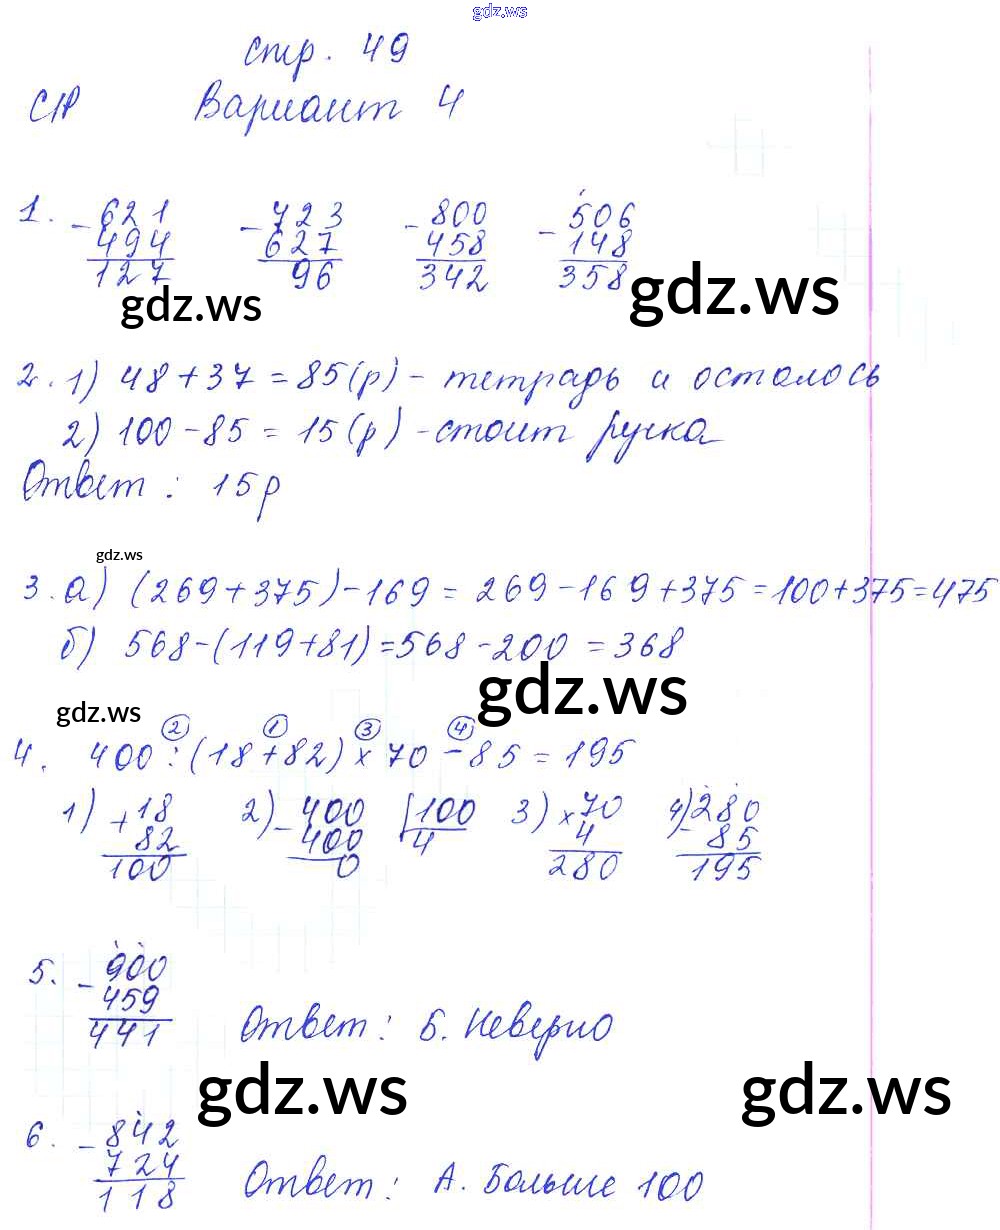 gdz.ws
стр. 49
С/Р Вариант 4
1. - 621 - 723 - 800 - 506
494 627 458 148
127 96 342 358
gdz.ws gdz.ws
2. 1) 48 + 37 = 85 (р) - тетрадь и осталось
2) 100 - 85 = 15 (р) - стоит ручка
Ответ : 15 р
gdz.ws
3. а) (269 + 375) - 169 = 269 - 169 + 375 = 100 + 375 = 475
б) 568 - (119 + 81) = 568 - 200 = 368
gdz.ws gdz.ws
2 1 3 4
4. 400 : (18 + 82) × 70 - 85 = 195
1) + 18 2) - 400 100 3) × 70 4) - 280
82 400 4 4 85
100 0 280 195
5. - 900
459
441 Ответ : Б. Неверно
gdz.ws gdz.ws
6. - 842
724
118 Ответ : А. Больше 100